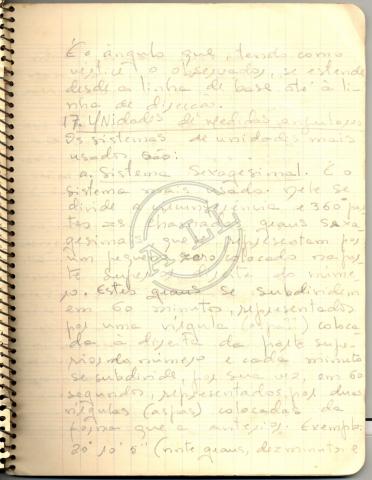 É o ângulo que, tendo como
vértice o observador, se estende
desde a linha de base até à li-
nha de direcao.
17. UNidades de medidas angulares
Os sistemas de unidades mais
usados são:
a. Sistema Sexagesimal. É o
sistema mais usado. Nele se
divide a circunferência e 360 par
tes as chamadas graus sexa
gesimais que representam por
um pequeno zero colocado na par
te superior direita do núme-
ro. Estes graus se subdividem
em 60 minutos, representados
por uma vírgula (aspa) coloca
da à direita da parte supe-
rior do número e cada minuto
se subdivide, por sua vez, em 60
segundos, representados por duas
vírgulas (aspas) colocadas da
forma que a anterior. Exemplo:
20° 10' 5" (vinte graus, dez minutos e